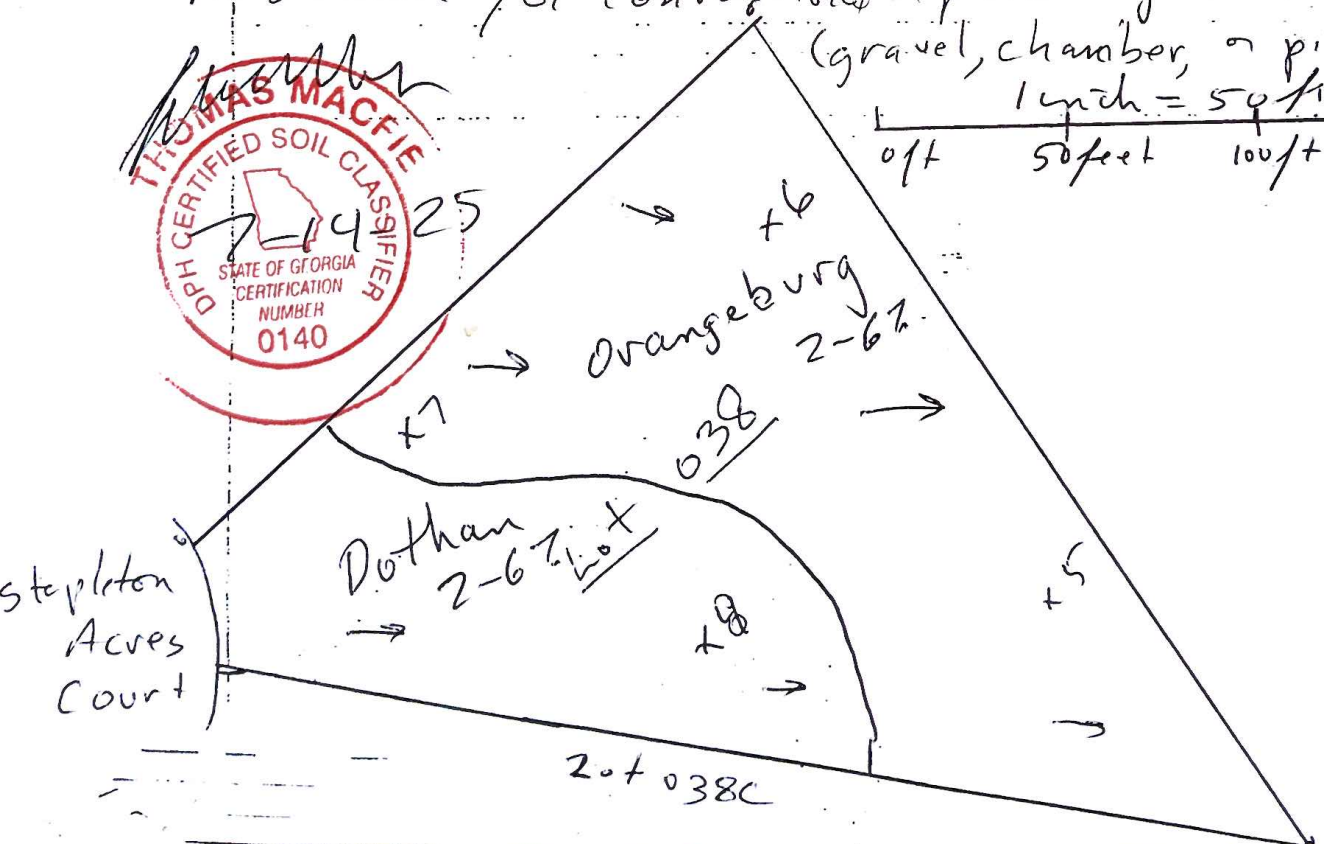 (gravel, chamber, or
1 inch = 50 ft
0 ft 50 feet 100 ft
THOMAS MACFIE
DPH CERTIFIED SOIL CLASSIFIER
7-14-25
STATE OF GEORGIA
CERTIFICATION
NUMBER
0140
+6
Orangeburg
2-6%
+7
038
Dothan
2-6%
Lot
Stapleton
Acres
Court
+8
+5
Lot 038C